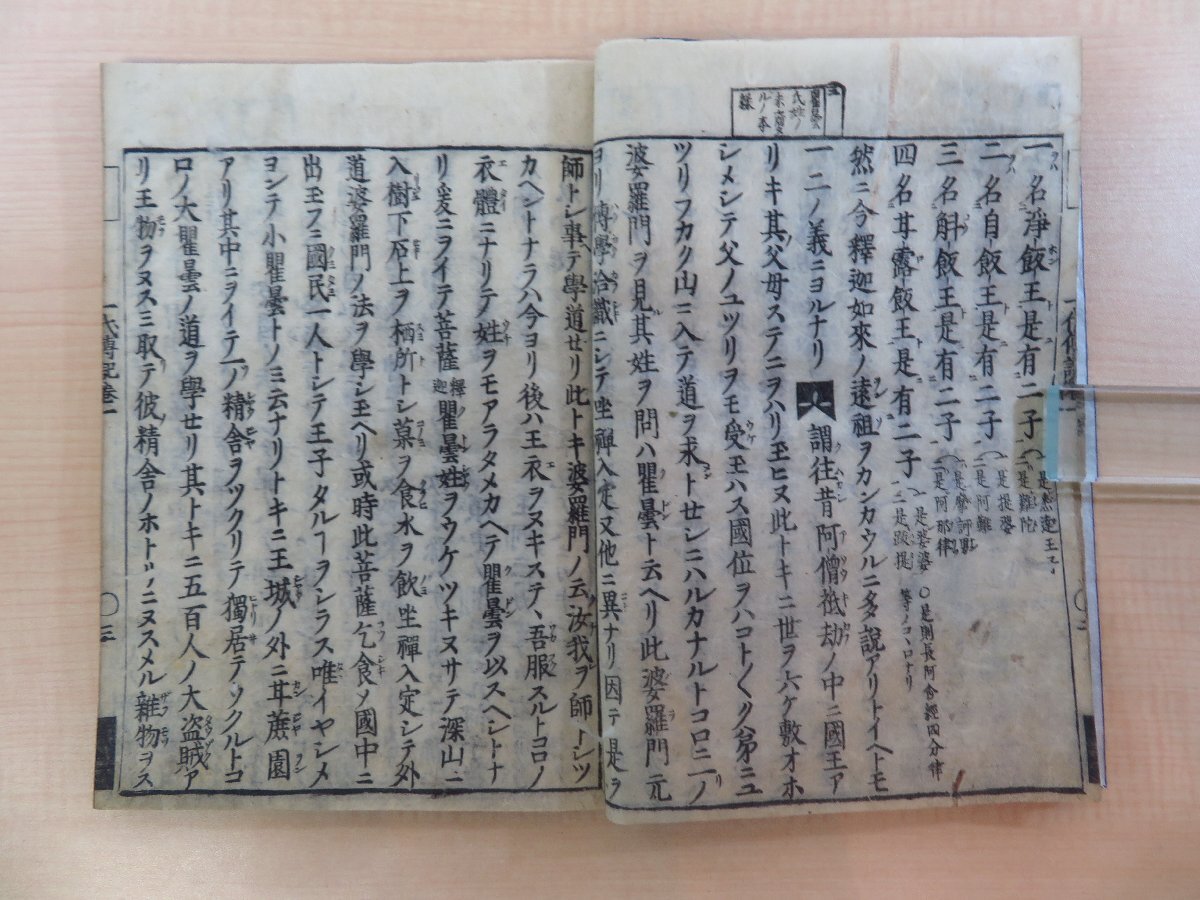 一名淨飯王是有二子
二名白飯王是有二子 一是提婆 二是阿難
三名斛飯王是有二子 二是阿那律
四名甘露飯王是有二子 一是娑婆 二是跋提 ○是則長阿含經四分律等ノコヽロナリ
然ニ今釋迦如來ノ遠祖ヲカンカウルニ多説アリトイヘトモ
一二ノ義ニヨルナリ 謂往昔阿僧祇劫ノ中ニ國王ア
リキ其父母ステニヲハリ玉ヒヌ此トキニ世ヲ六ケ敷オホ
シメシテ父ノユツリヲモ受玉ハス國位ヲハコト〱ク弟ニユ
ツリフカク山ニ入テ道ヲ求トセシニハルカナルトコロニ一ノ
婆羅門ヲ見其姓ヲ問ハ瞿曇ト云ヘリ此婆羅門元
ヨリ博學洽識ニシテ坐禪入定又他ニ異ナリ因テ是ヲ
師トシ事テ學道セリ此トキ婆羅門ノ云汝我ヲ師トシツ
カヘントナラハ今ヨリ後ハ王衣ヲヌキステ、吾服スルトコロノ
衣體ニナリテ姓ヲモアラタメカヘテ瞿曇ヲ以スヘシトナ
リ爰ニヲイテ菩薩 釋迦 瞿曇姓ヲウケツキヌサテ深山ニ
入樹下石上ヲ栖所トシ菓ヲ食水ヲ飲坐禪入定シテ外
道婆羅門ノ法ヲ學シ玉ヘリ或時此菩薩乞食メ國中ニ
出玉フニ國民一人トシテ王子タルヿヲシラス唯イヤシメ
ヲンテ小瞿曇トノミ云ナリトキニ王城ノ外ニ甘蔗園
アリ其中ニヲイテ一ノ精舎ヲツクリテ獨居テツクルトコ
ロノ大瞿曇ノ道ヲ學セリ其トキニ五百人ノ大盗賊ア
リ王物ヲヌスミ取テ彼精舎ノホトリニヌスメル雜物ヲス